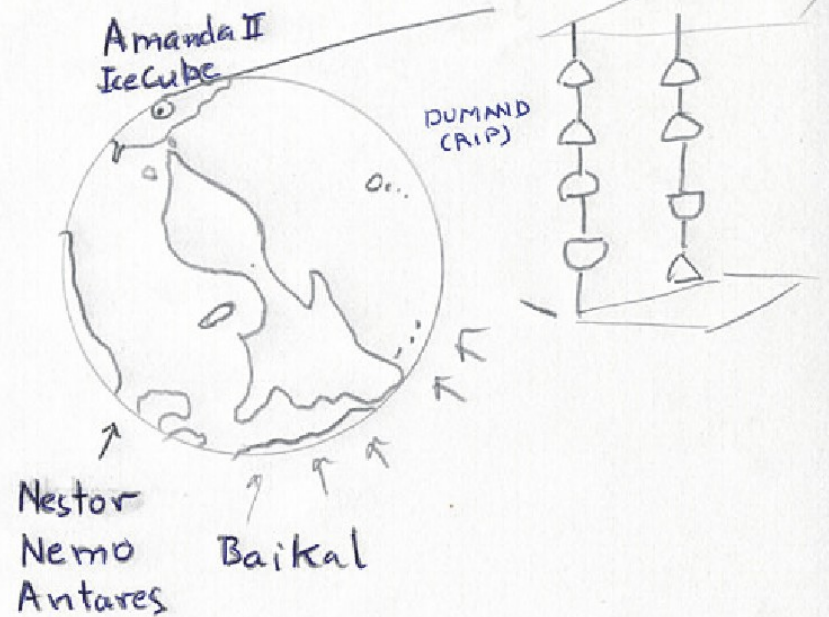 Amanda II
IceCube
DUMAND
(RIP)
Nestor
Nemo
Antares
Baikal